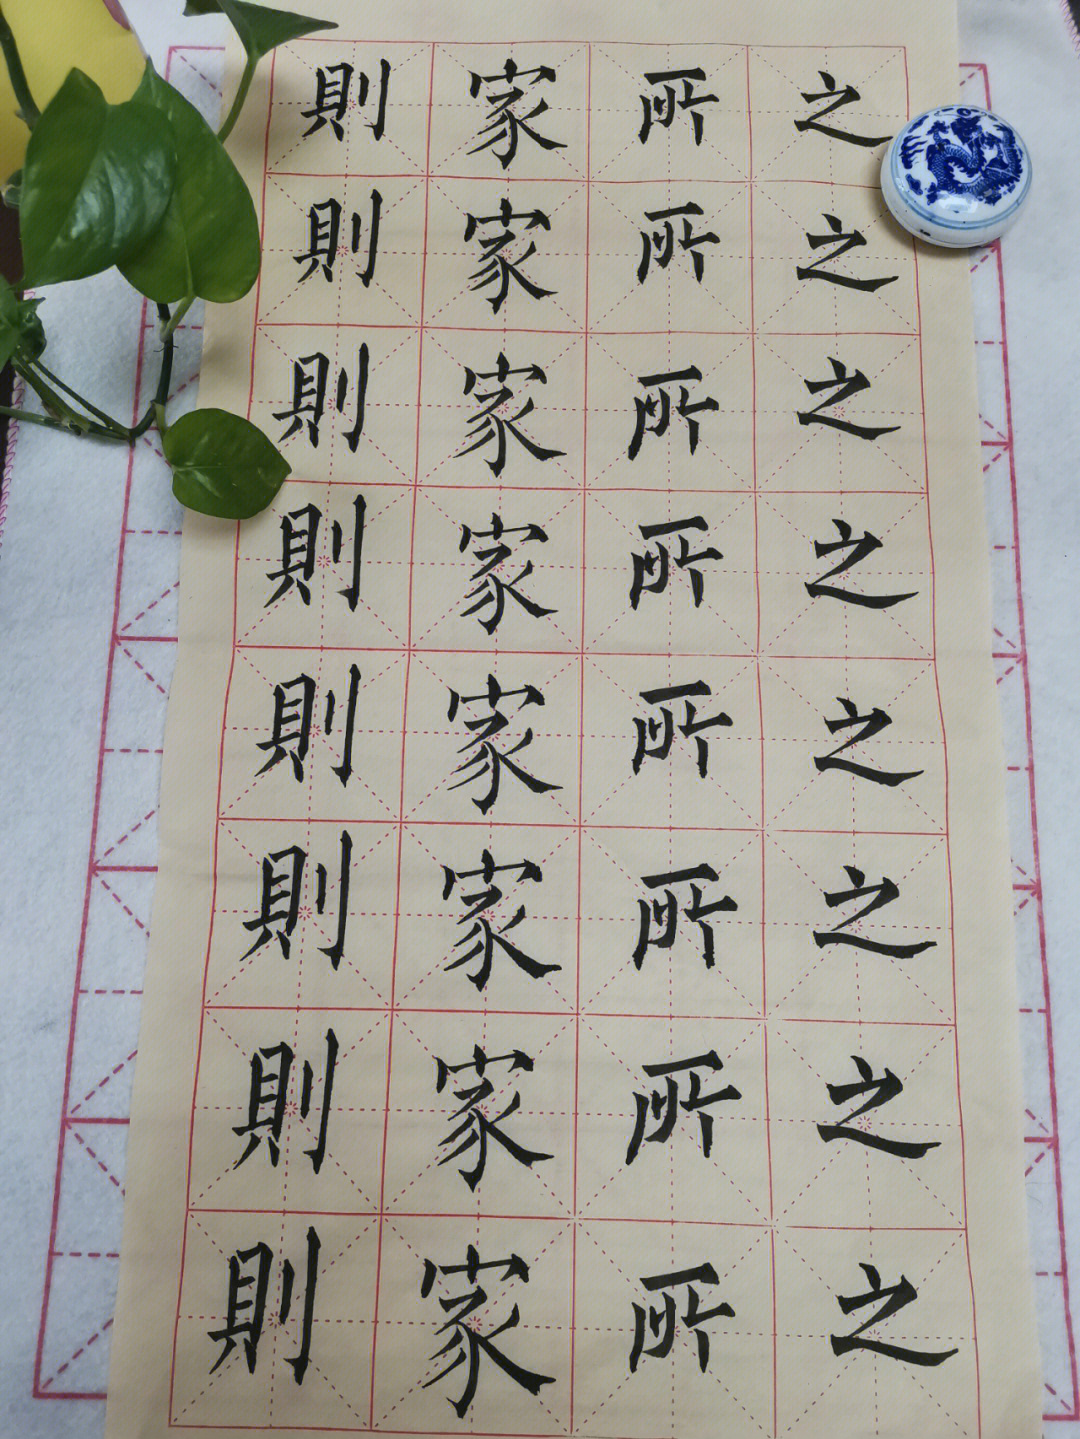 之之之之之之之之
所所所所所所所所
家家家家家家家家
則則則則則則則則